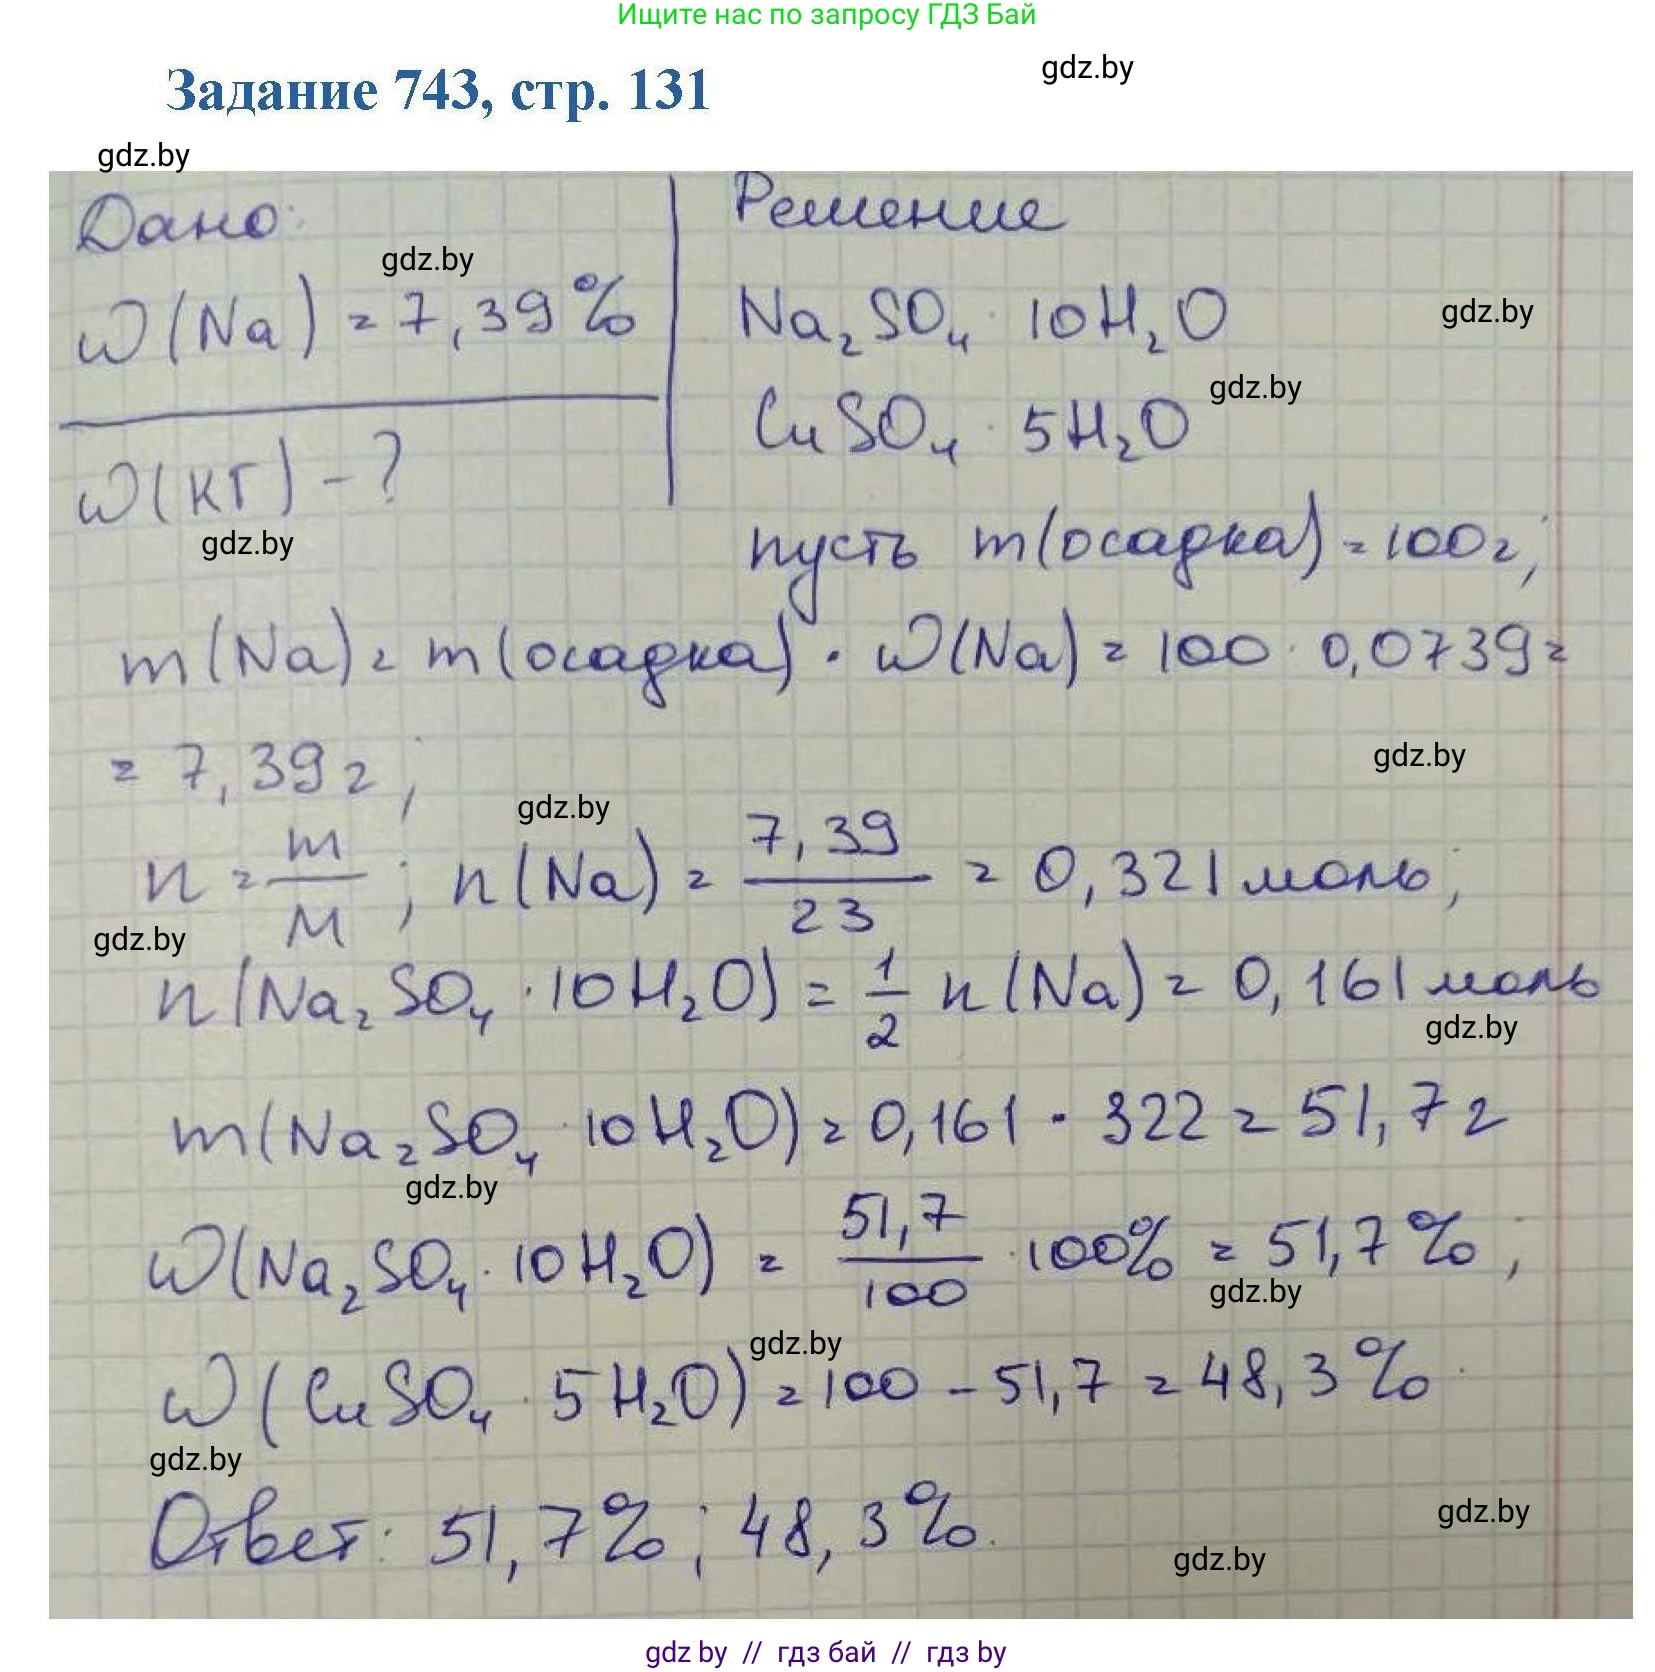 Ищите нас по запросу ГДЗ Бай
Задание 743, стр. 131
gdz.by
gdz.by
Дано:
Решение
gdz.by
ω(Na) = 7,39%
Na₂SO₄ · 10H₂O
gdz.by
CuSO₄ · 5H₂O
gdz.by
ω(КГ) - ?
gdz.by
пусть m(осадка) = 100г;
m(Na) = m(осадка) · ω(Na) = 100 · 0,0739 =
= 7,39г;
gdz.by
gdz.by
n = m/M; n(Na) = 7,39/23 = 0,321 моль;
gdz.by
n(Na₂SO₄ · 10H₂O) = 1/2 n(Na) = 0,161 моль
gdz.by
m(Na₂SO₄ · 10H₂O) = 0,161 · 322 = 51,7г
gdz.by
ω(Na₂SO₄ · 10H₂O) = 51,7/100 · 100% = 51,7%;
gdz.by
gdz.by
ω(CuSO₄ · 5H₂O) = 100 - 51,7 = 48,3%.
gdz.by
Ответ: 51,7%; 48,3%.
gdz.by
gdz.by
gdz by // гдз бай // гдз by